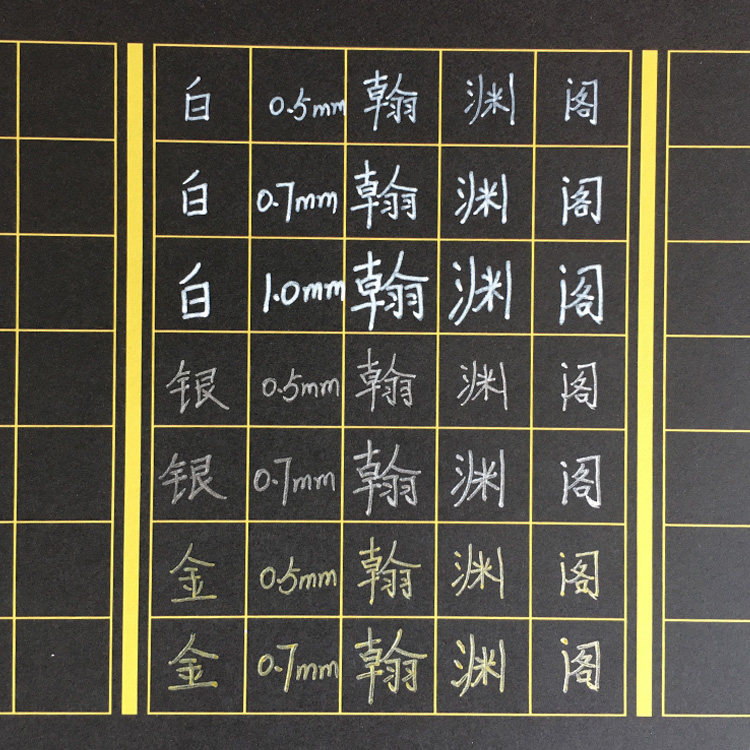 白 0.5mm 翰 渊 阁
白 0.7mm 翰 渊 阁
白 1.0mm 翰 渊 阁
银 0.5mm 翰 渊 阁
银 0.7mm 翰 渊 阁
金 0.5mm 翰 渊 阁
金 0.7mm 翰 渊 阁